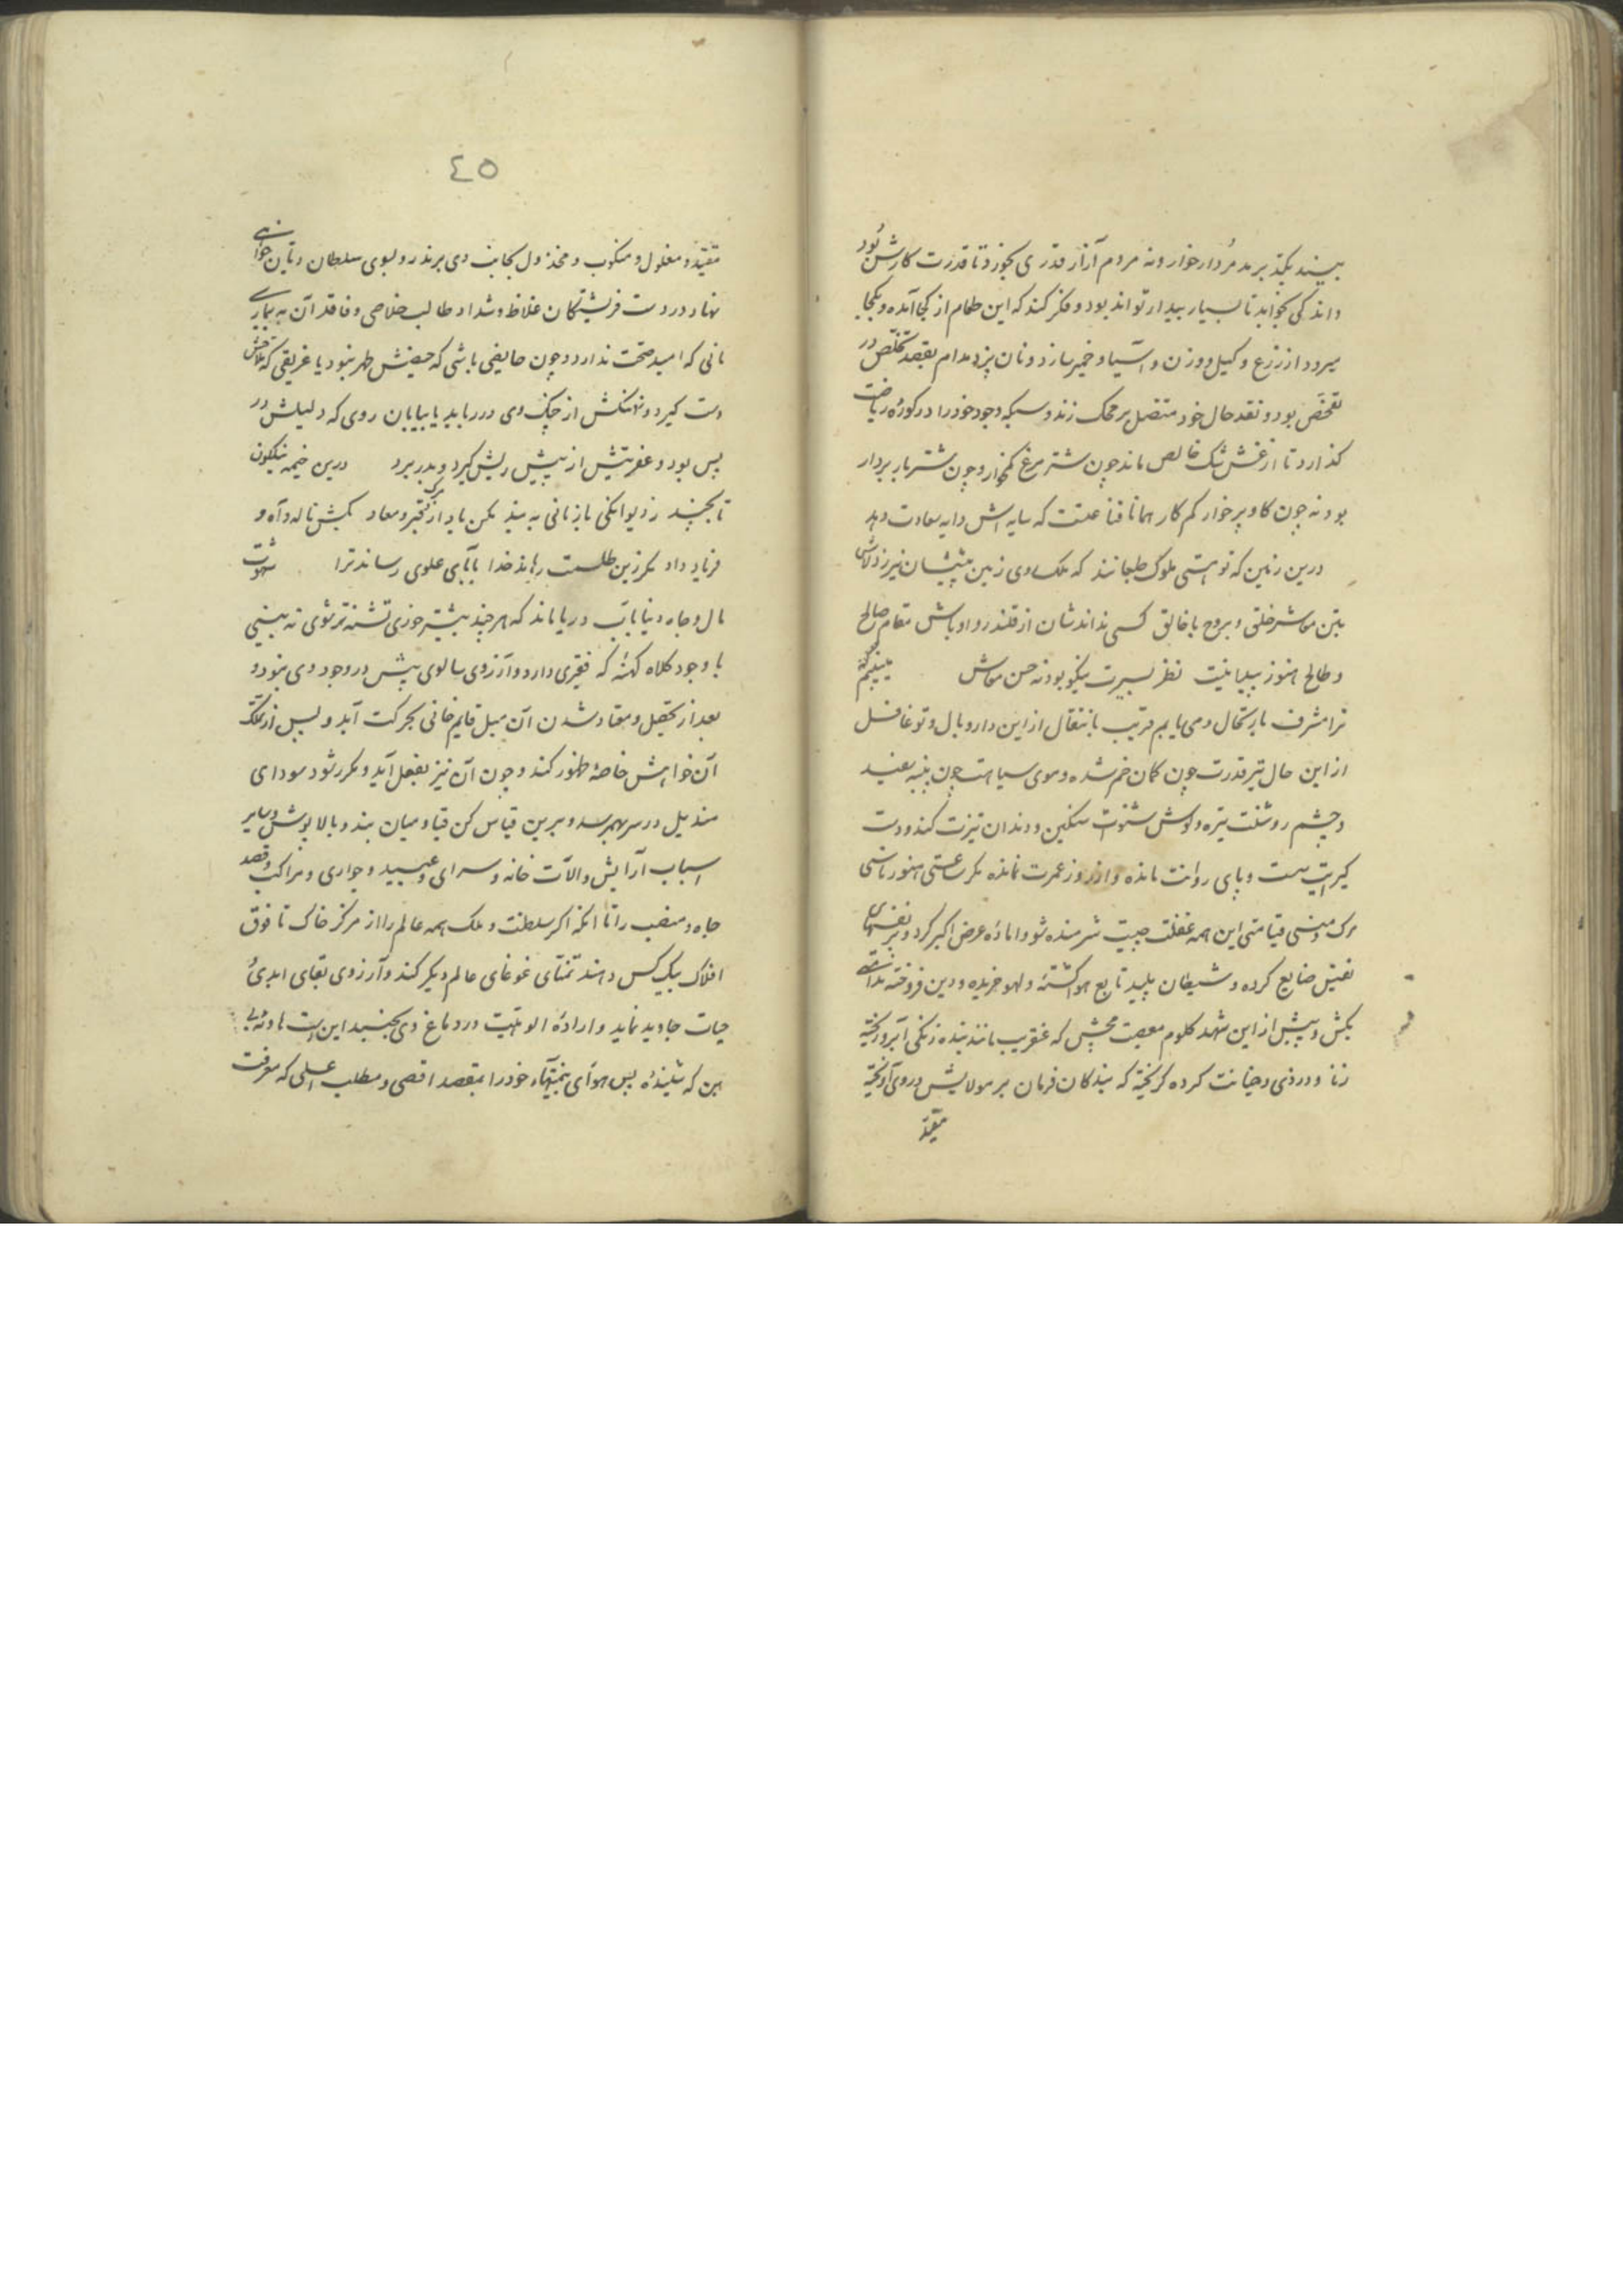 بیند بکذیر بد مردار خوار و نه مردم آزار قدری بخورد تا قدرت کارش بود
و اندکی بخوابد تا بسیار بیدار تواند بود و فکر کند که این طعام از کجا آمده و بکجا
میرود از زرع و کیل و وزن و آسیا و خمیر سازد و نان پزد مدام بقصد تخلص در
تفحص بود و نقد حال خود متصل بر محک زند و سبکه وجود خود را در کوره ریاضت
کذارد تا از غش شک خالص ماند چون شتر مرغ کمخوار و چون شتر بار بردار
بود نه چون کاو پر خوار کم کار همانا قناعتست که سایه اش دایه سعادت دهد
درین زمین که تو هستی ملوک طبعانند که ملک وی زمین پیششان نیرزد لاش
بتن معاشر خلق و بروح با خالق کسی نداندشان از قلندر و اوباش مقام صالح
و طالح هنوز پیدا نیست نظر بسیرت نیکو بود نه حسن معاش می‌بینم که
ترا مشرف بارتحال و می یابم قریب بانتقال از این دار وبال و تو غافل
از این حال تیر قدرت چون کمان خم شده و موی سیاهت چون پنبه سفید
و چشم روشنت تیره و کوش شنوت سنکین و دندان تیزت کند و دست
کیرایت سست و پای روانت مانده و از روز عمرت نمانده مکر ساعتی هنوز ناسی
مرک و منسی قیامتی این همه غفلت چیست شرمنده شو و آماده عرض اکبر کرد و بر نفسهای
نفیس ضایع کرده و شیطان پلید تابع هوا کشته و لهو خریده و دین فروخته ندامتی
بکش و پیش از این شهد کلوم معصیت مچش که عنقریب مانند بنده زنکی آبرو ریخته
زنا و دزدی و خیانت کرده کریخته که بندکان فرمان بر مولایش در وی آویخته
مقید
٤٥
مقید و مغلول و منکوب و مخذول بجانب وی برند رو بسوی سلطان و تاین خواهی
نهاد در دست فریشتکان غلاظ و شداد طالب خلاصی و فاقد آن به بیماری
مانی که امید صحت ندارد و چون حایضی باشی که حیضش طهر نبود یا غریقی که ملاحش
دست کیرد و نهنکش از چنک وی در رباید یا بیابان روی که دلیلش در
پس بود و عفریتش از پیش ریش کیرد و بدر برد درین خیمه نیلکون
تا بچند ز دیوانکی بازنانی به بند بکن یاد از مرک و قبر و معاد بکش ناله و آه و
فریاد و داد مکر زین طلسمت رهاند خدا بآبای علوی رساند ترا شهوت
مال و جاه دنیا بآب دریا ماند که هر چند بیشتر خوری تشنه تر شوی نه بینی
با وجود کلاه کهنه که فقیری دارد و آرزوی سالوی پیش در وجود وی نبود و
بعد از تحصیل و معتاد شدن آن میل قایم خانی بحرکت آید و پس از تملک
آن خواهش خاصه ظهور کند و چون آن نیز بفعل آید و مکرر شود سودای
مندیل در سر بهم رسد و برین قیاس کن قبا و میان بند و بالا پوش و سایر
اسباب آرایش و الآت خانه و سرای و عبید و جواری و مراکب و قصد
جاه و منصب را تا آنکه اکر سلطنت و ملک همه عالم را از مرکز خاک تا فوق
افلاک بیک کس دهند تمنای غوغای عالم دیکر کند و آرزوی بقای ابدی
حیات جاوید نماید و اراده الوهیت در دماغ وی بجنبد این است هاویه بی
بن که شنیده پس هوای بمنتهاء خود را بمقصد اقصی و مطلب اعلی که معرفت